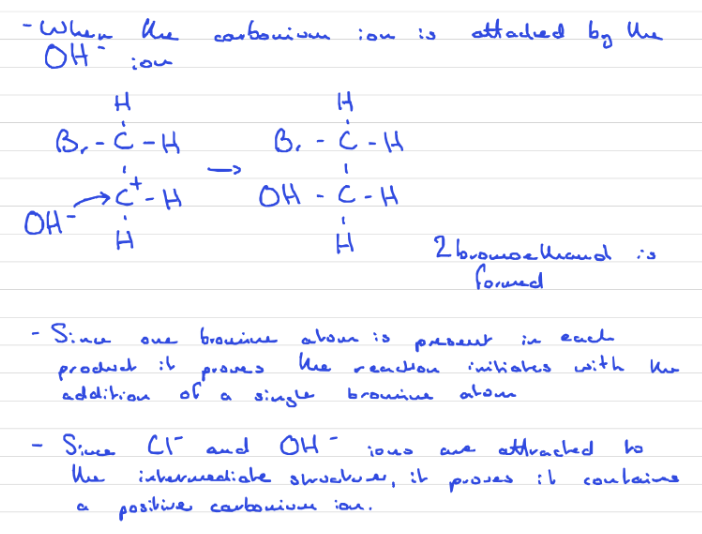 - When the carbonium ion is attacked by the
OH⁻ ion
H H
Br - C - H Br - C - H
→
OH⁻ C⁺ - H OH - C - H
H H
2 bromoethanol is
formed
- Since one bromine atom is present in each
product it proves the reaction initiates with the
addition of a single bromine atom
- Since Cl⁻ and OH⁻ ions are attracted to
the intermediate structure, it proves it contains
a positive carbonium ion.